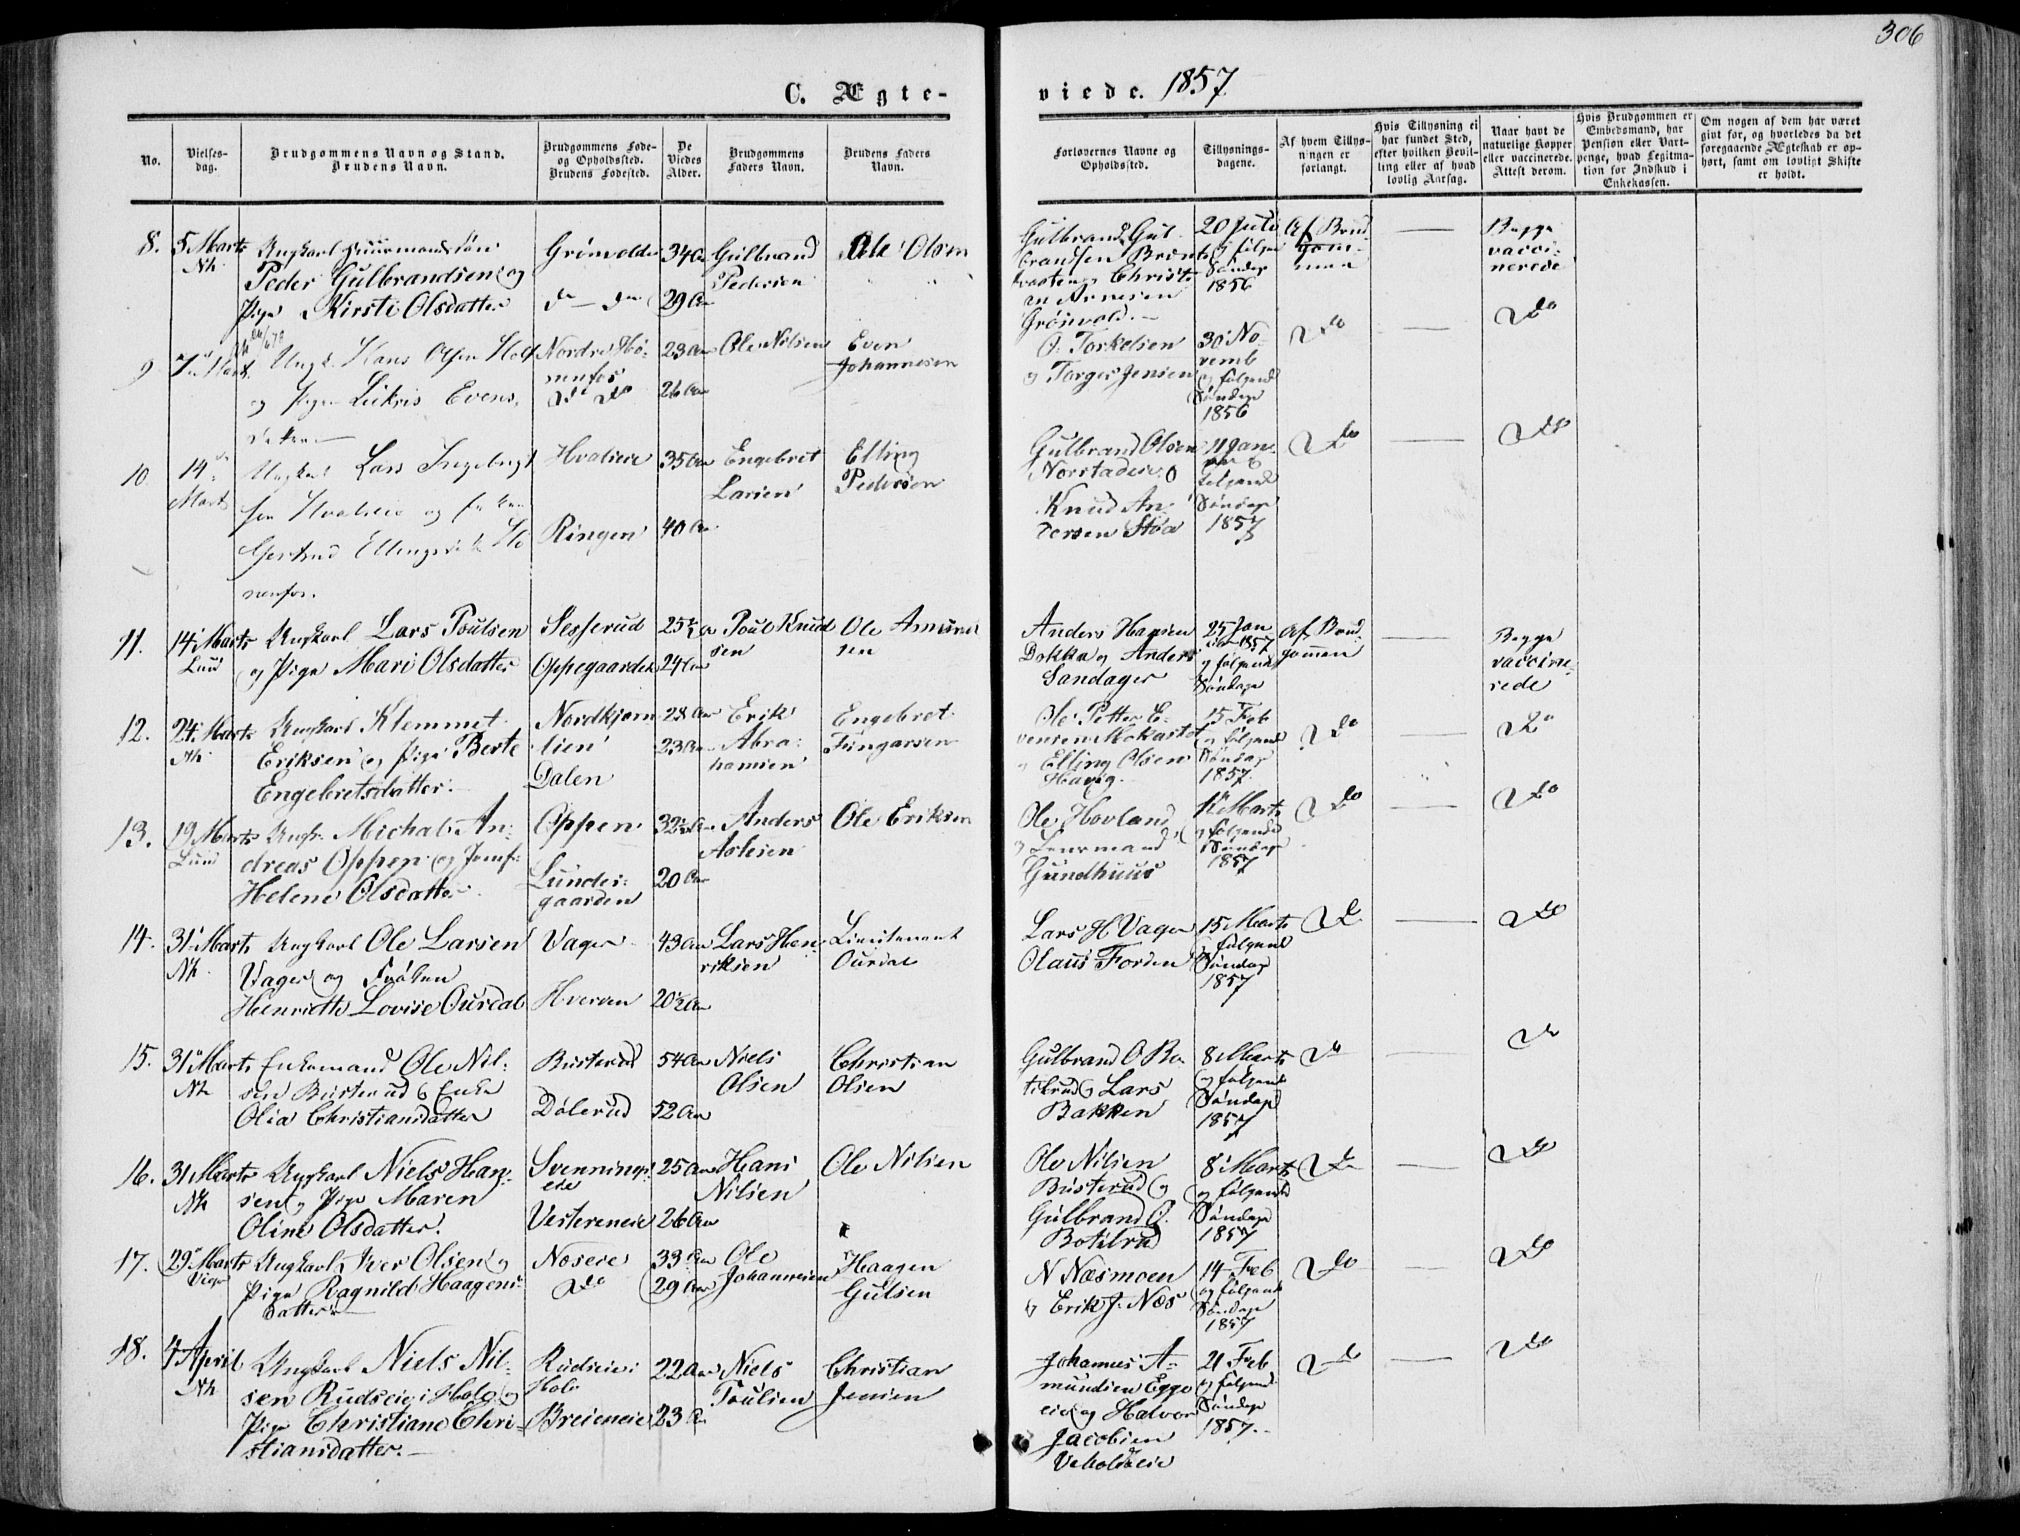 306
C. Ægte-
viede. 1857
No.
Vielses-
dag.
Brudgommens Navn og Stand.
Brudens Navn.
Brudgommens Føde-
og Opholdssted.
Brudens Fødested.
De
Viedes
Alder.
Brudgommens
Faders Navn.
Brudens Faders
Navn.
Forlovernes Navne og
Opholdssted.
Tillysnings-
dagene.
Af hvem Tillys-
ningen er
forlangt.
Hvis Tillysning ei
har fundet Sted,
efter hvilken Bevil-
ling eller af hvad
lovlig Aarsag.
Naar havt de
naturlige Kopper
eller vaccinerede.
Attest derom.
Hvis Brudgommen er
Embedsmand, har
Pension eller Vart-
penge, hvad Legitima-
tion for Indskud i
Enkekassen.
Om nogen af dem har været
givt for, og hvorledes da det
foregaaende Ægteskab er op-
hørt, samt om lovligt Skifte
er holdt.
8. 5 Marts
Nh.
Ungkarl Huusmandssøn
Peder Gulbrandsen og
Pige Kirsti Olsdatter
Grönvold
do - do
34 Aar
29 Aar
Gulbrand
Pedersen
Ole Olsen
Gulbrand Gul-
brandsen
Christi-
an Arnesen
Grönvold.
20 Juli
og følgende
Søndage
1856
Af Brud-
gom-
men
Begge
vacci-
nerede
9 7 Marts
Ungk. Hans Olsen
og Pige Lükris Evens-
datter
Nordre Hø-
nenfos
do do
23 Aar
26 Aar
Ole Nilsen
Even
Johannesen
O. Torkelsen
og Torger Jensen
30 No-
vemb
og følgende
Søndage
1856
do
do
10 14
Marts
Ungkarl Lars Ingebregt-
sen Hvalseie og
Gertrud Ellingsdt. Hø-
nenfos.
Hvalseie
Ringen
35 Aar
40 Aar
Engebret
Larsen
Elling
Pedersen
Gulbrand Olsen
Norstadeie og
Knud An-
dersen Støa
11 Jan-
uar og
følgende
Søndage
1857
do
do
11. 14 Marts
Lund
Ungkarl Lars Poulsen
og Pige Mari Olsdatter
Sesserud
Oppegaarden
25½ Aar
24 Aar
Poul Knud-
sen
Ole Amund-
sen
Anders Hansen
Dokka og Anders
Sandager
25 Jan-
uar 1857
og følgende
Søndage
Af Brud-
gommen
Begge
vaccine-
rede
12. 24 Marts
Nh
Ungkarl Klemmet
Eriksen og Pige Berte
Engebretsdatter.
Nordkjern-
lien
Dalen
28 Aar
23 Aar
Erik
Abra-
hamsen
Engebret
Fingarsen
Ole Petter E-
vensen Mokastet
og Elling Olsen
Haug
15 Feb
og følgende
Søndage
1857
do
do
13. 19 Marts
Lund
Ungk. Michal An-
dreas Oppen og Jomf:
Helene Olsdatter
Oppen
Lunder-
gaarden
32½ Aar
20 Aar
Anders
Aslesen
Ole Eriksen
Ole Hovland
og Lensmand
Gundhuus
1 Marts
og følgende
Søndage
1857
do
do
14. 31 Marts
Nh.
Ungkarl Ole Larsen
Vager og Frøken
Henriette Lovise Ourdal
Vager
Hverven
43 Aar
20½ Aar
Lars Hen-
riksen
Lieutenant
Ourdal
Lars H Vager
Olaus Forden
15 Marts
og følgende
Søndage
1857
do
do
15. 31 Marts
Nh
Enkemand Ole Nil-
sen Busterud og Enke
Olia Christiansdatter
Busterud
Dølerud
54 Aar
52 Aar
Niels
Olsen
Christian
Olsen
Gulbrand O Bo-
tilrud og Lars
Bakken
8 Marts
og følgende
Søndage
1857
do
do
16. 31 Marts
Nh
Ungkarl Niels Han-
sen og Pige Maren
Oline Olsdatter.
Svennings-
eie
Vesterneie
25 Aar
26 Aar
Hans
Nilsen
Ole Nilsen
Ole Nilsen
Busterud og
Gulbrand O.
Botilrud
8 Marts
og følgende
Søndage
1857
do
do
17. 29 Marts
Viger
Ungkarl Iver Olsen og
Pige Ragnild Haagens-
datter
Næseie
do
33 Aar
29 Aar
Ole
Johannesen
Haagen
Gulsen
N Næsmoen
og Erik J. Næs
14 Feb
og følgende
Søndage
1857
do
do
18. 4 April
Nh
Ungkarl Niels Nil-
sen Rudseie i Hole og
Pige Christiane Chri-
stiansdatter.
Rudseie i
Hole
Breieneie
22 Aar
23 Aar
Niels
Poulsen
Christian
Jensen
Johannes A-
mundsen Egge-
eie og Halvor
Jacobsen
Veholdteie
21 Feb
og følgende
Søndage
1857.
do
do